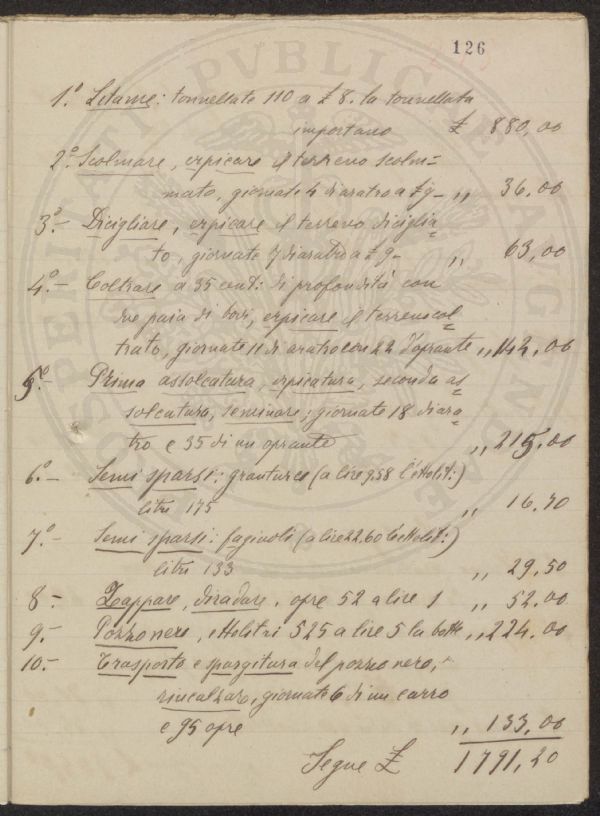 126
1º. Letame: tonnellate 110 a £ 8. la tonnellata
importano £ 880,00
2º. Scolmare, erpicare il terreno scolm=
mato, giornate 4 di aratro a £ 9 - ,, 36,00
3º.- Dicigliare, erpicare il terreno diciglia=
to, giornate 7 di aratro a £ 9 - ,, 63,00
4º.- Coltrare a 35 cent: di profondità con
due paia di bovi, erpicare il terreno col=
trato, giornate 11 di aratro con 22 d'oprante ,, 142,00
5º.- Prima assolcatura, erpicatura, seconda as=
solcatura, seminare; giornate 18 di ara=
tro e 35 di un oprante ,, 215,00
6º.- Semi sparsi: granturco (a lire 9,58 l'ettolit:)
litri 175 ,, 16,70
7º.- Semi sparsi: fagiuoli (a lire 22.60 l'ettolit:)
litri 133 ,, 29,50
8 - Zappare, diradare, opre 52 a lire 1 ,, 52,00
9.- Pozzo nero, ettolitri 525 a lire 5 la botte ,, 224,00
10.- Trasporto e spargitura del pozzo nero,
rincalzare, giornate 6 di un carro
e 95 opre ,, 133,00
Segue £ 1791,20
OSPERITATI PVBLICAE AVGENDAE